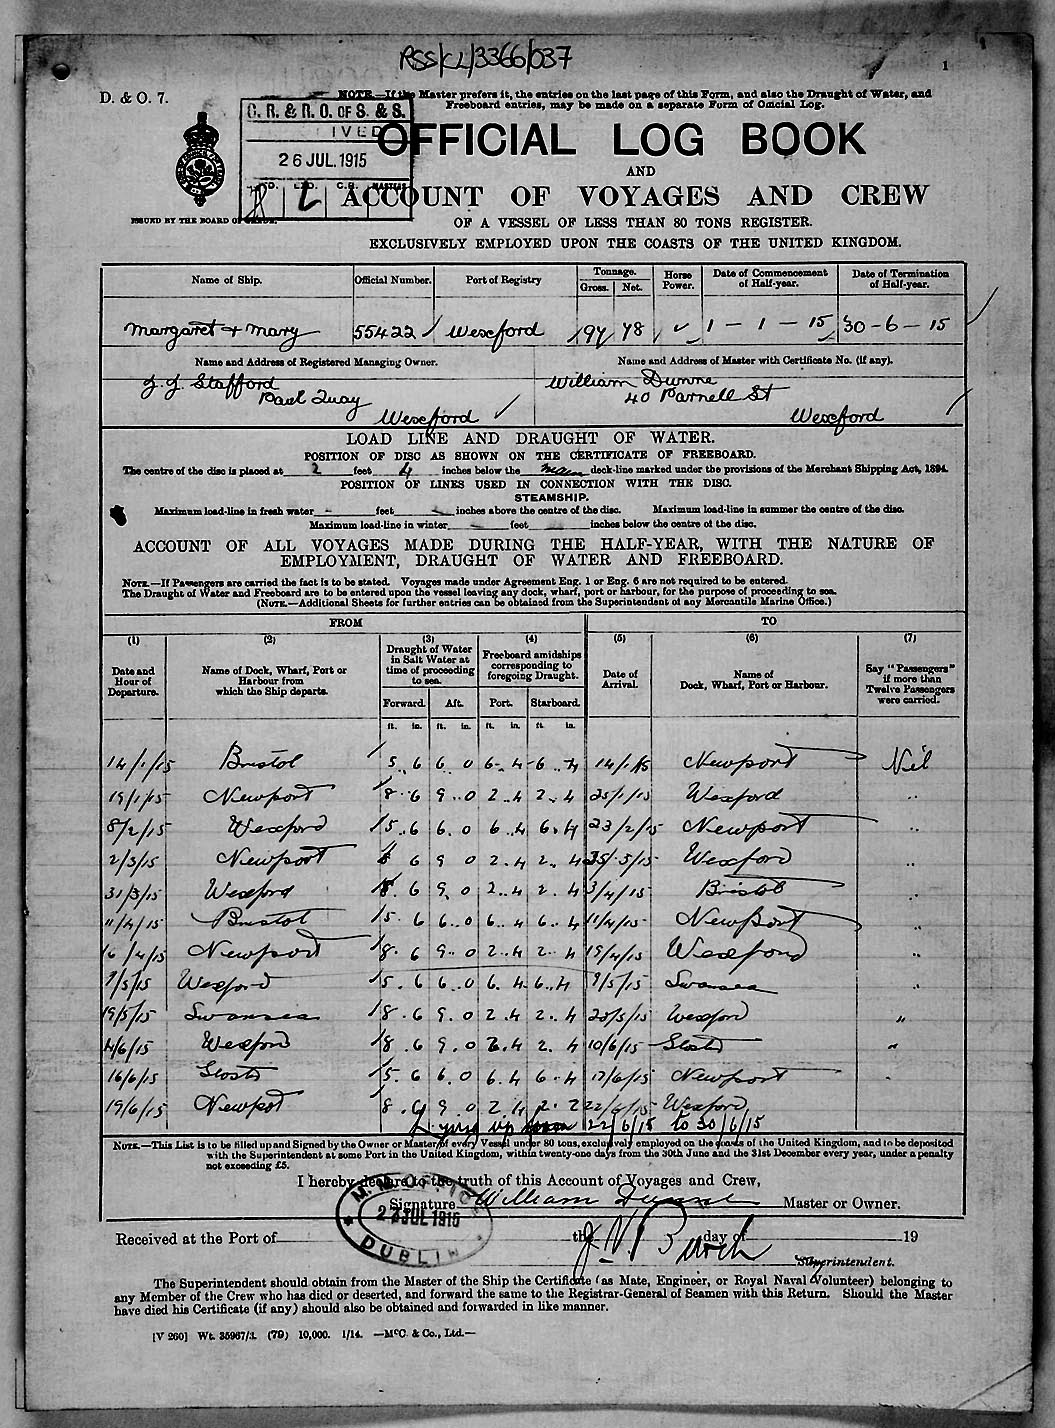 RSS/CL/3366/037
1
D. & O. 7.
NOTE.—If the Master prefers it, the entries on the last page of this Form, and also the Draught of Water, and
Freeboard entries, may be made on a separate Form of Official Log.
C. R. & R. O. OF S. & S.
IVED
26 JUL. 1915
OFFICIAL LOG BOOK
AND
ACCOUNT OF VOYAGES AND CREW
ISSUED BY THE BOARD OF TRADE.
OF A VESSEL OF LESS THAN 80 TONS REGISTER.
EXCLUSIVELY EMPLOYED UPON THE COASTS OF THE UNITED KINGDOM.
Name of Ship. Official Number. Port of Registry Tonnage. Gross. Net. Horse Power. Date of Commencement of Half-year. Date of Termination of Half-year.
Margaret & Mary 55422 Wexford 97 78 1 - 1 - 15 30 - 6 - 15
Name and Address of Registered Managing Owner. Name and Address of Master with Certificate No. (if any).
J. J. Stafford William Dunne
Paul Quay 40 Parnell St
Wexford Wexford
LOAD LINE AND DRAUGHT OF WATER.
POSITION OF DISC AS SHOWN ON THE CERTIFICATE OF FREEBOARD.
The centre of the disc is placed at 2 feet 4 inches below the main deck-line marked under the provisions of the Merchant Shipping Act, 1894.
POSITION OF LINES USED IN CONNECTION WITH THE DISC.
STEAMSHIP.
Maximum load-line in fresh water - feet - inches above the centre of the disc. Maximum load-line in summer the centre of the disc.
Maximum load-line in winter - feet inches below the centre of the disc.
ACCOUNT OF ALL VOYAGES MADE DURING THE HALF-YEAR, WITH THE NATURE OF
EMPLOYMENT, DRAUGHT OF WATER AND FREEBOARD.
NOTE.—If Passengers are carried the fact is to be stated. Voyages made under Agreement Eng. 1 or Eng. 6 are not required to be entered.
The Draught of Water and Freeboard are to be entered upon the vessel leaving any dock, wharf, port or harbour, for the purpose of proceeding to sea.
(NOTE.—Additional Sheets for further entries can be obtained from the Superintendent of any Mercantile Marine Office.)
FROM TO
(1) (2) (3) (4) (5) (6) (7)
Date and Hour of Departure. Name of Dock, Wharf, Port or Harbour from which the Ship departs. Draught of Water in Salt Water at time of proceeding to sea. Freeboard amidships corresponding to foregoing Draught. Date of Arrival. Name of Dock, Wharf, Port or Harbour. Say "Passengers" if more than Twelve Passengers were carried.
Forward. Aft. Port. Starboard.
ft. in. ft. in. ft. in. ft. in.
14/1/15 Bristol 5 .. 6 6 0 6 - 4 6 .. 4 14/1/15 Newport Nil
19/1/15 Newport 8 . 6 9 .. 0 2 .. 4 2 .. 4 25/1/15 Wexford ..
8/2/15 Wexford 5 .. 6 6 . 0 6 .. 4 6 . 4 23/2/15 Newport ..
2/3/15 Newport 8 6 9 0 2 .. 4 2 .. 4 Wexford ..
31/3/15 Wexford 8 . 6 9 . 0 2 .. 4 2 . 4 3/4/15 Bristol ..
11/4/15 Bristol 5 . 6 6 .. 0 6 .. 4 6 .. 4 11/4/15 Newport ..
16/4/15 Newport 8 . 6 9 .. 0 2 .. 4 2 .. 4 19/4/15 Wexford ..
7/5/15 Wexford 5 . 6 6 .. 0 6 . 4 6 .. 4 9/5/15 Swansea ..
19/5/15 Swansea 8 . 6 9 . 0 2 . 4 2 .. 4 23/5/15 Wexford "
4/6/15 Wexford 8 . 6 9 . 0 2 . 4 2 . 4 10/6/15 Gloster "
16/6/15 Gloster 5 . 6 6 . 0 6 . 4 6 . 4 17/6/15 Newport .
19/6/15 Newport 8 . 6 9 . 0 2 4 2 . 2 22/6/15 Wexford
Lying up 22/6/15 to 30/6/15
NOTE.—This List is to be filled up and Signed by the Owner or Master of every Vessel under 80 tons, exclusively employed on the coasts of the United Kingdom, and to be deposited
with the Superintendent at some Port in the United Kingdom, within twenty-one days from the 30th June and the 31st December every year, under a penalty
not exceeding £5.
I hereby declare to the truth of this Account of Voyages and Crew,
Signature William Dunne Master or Owner.
M. M. OFFICE
27 JUL 1915
DUBLIN
Received at the Port of the day of 19
Superintendent.
The Superintendent should obtain from the Master of the Ship the Certificate (as Mate, Engineer, or Royal Naval Volunteer) belonging to
any Member of the Crew who has died or deserted, and forward the same to the Registrar-General of Seamen with this Return. Should the Master
have died his Certificate (if any) should also be obtained and forwarded in like manner.
[V 260] Wt. 35967/3. (79) 10,000. 1/14. —McC. & Co., Ltd.—